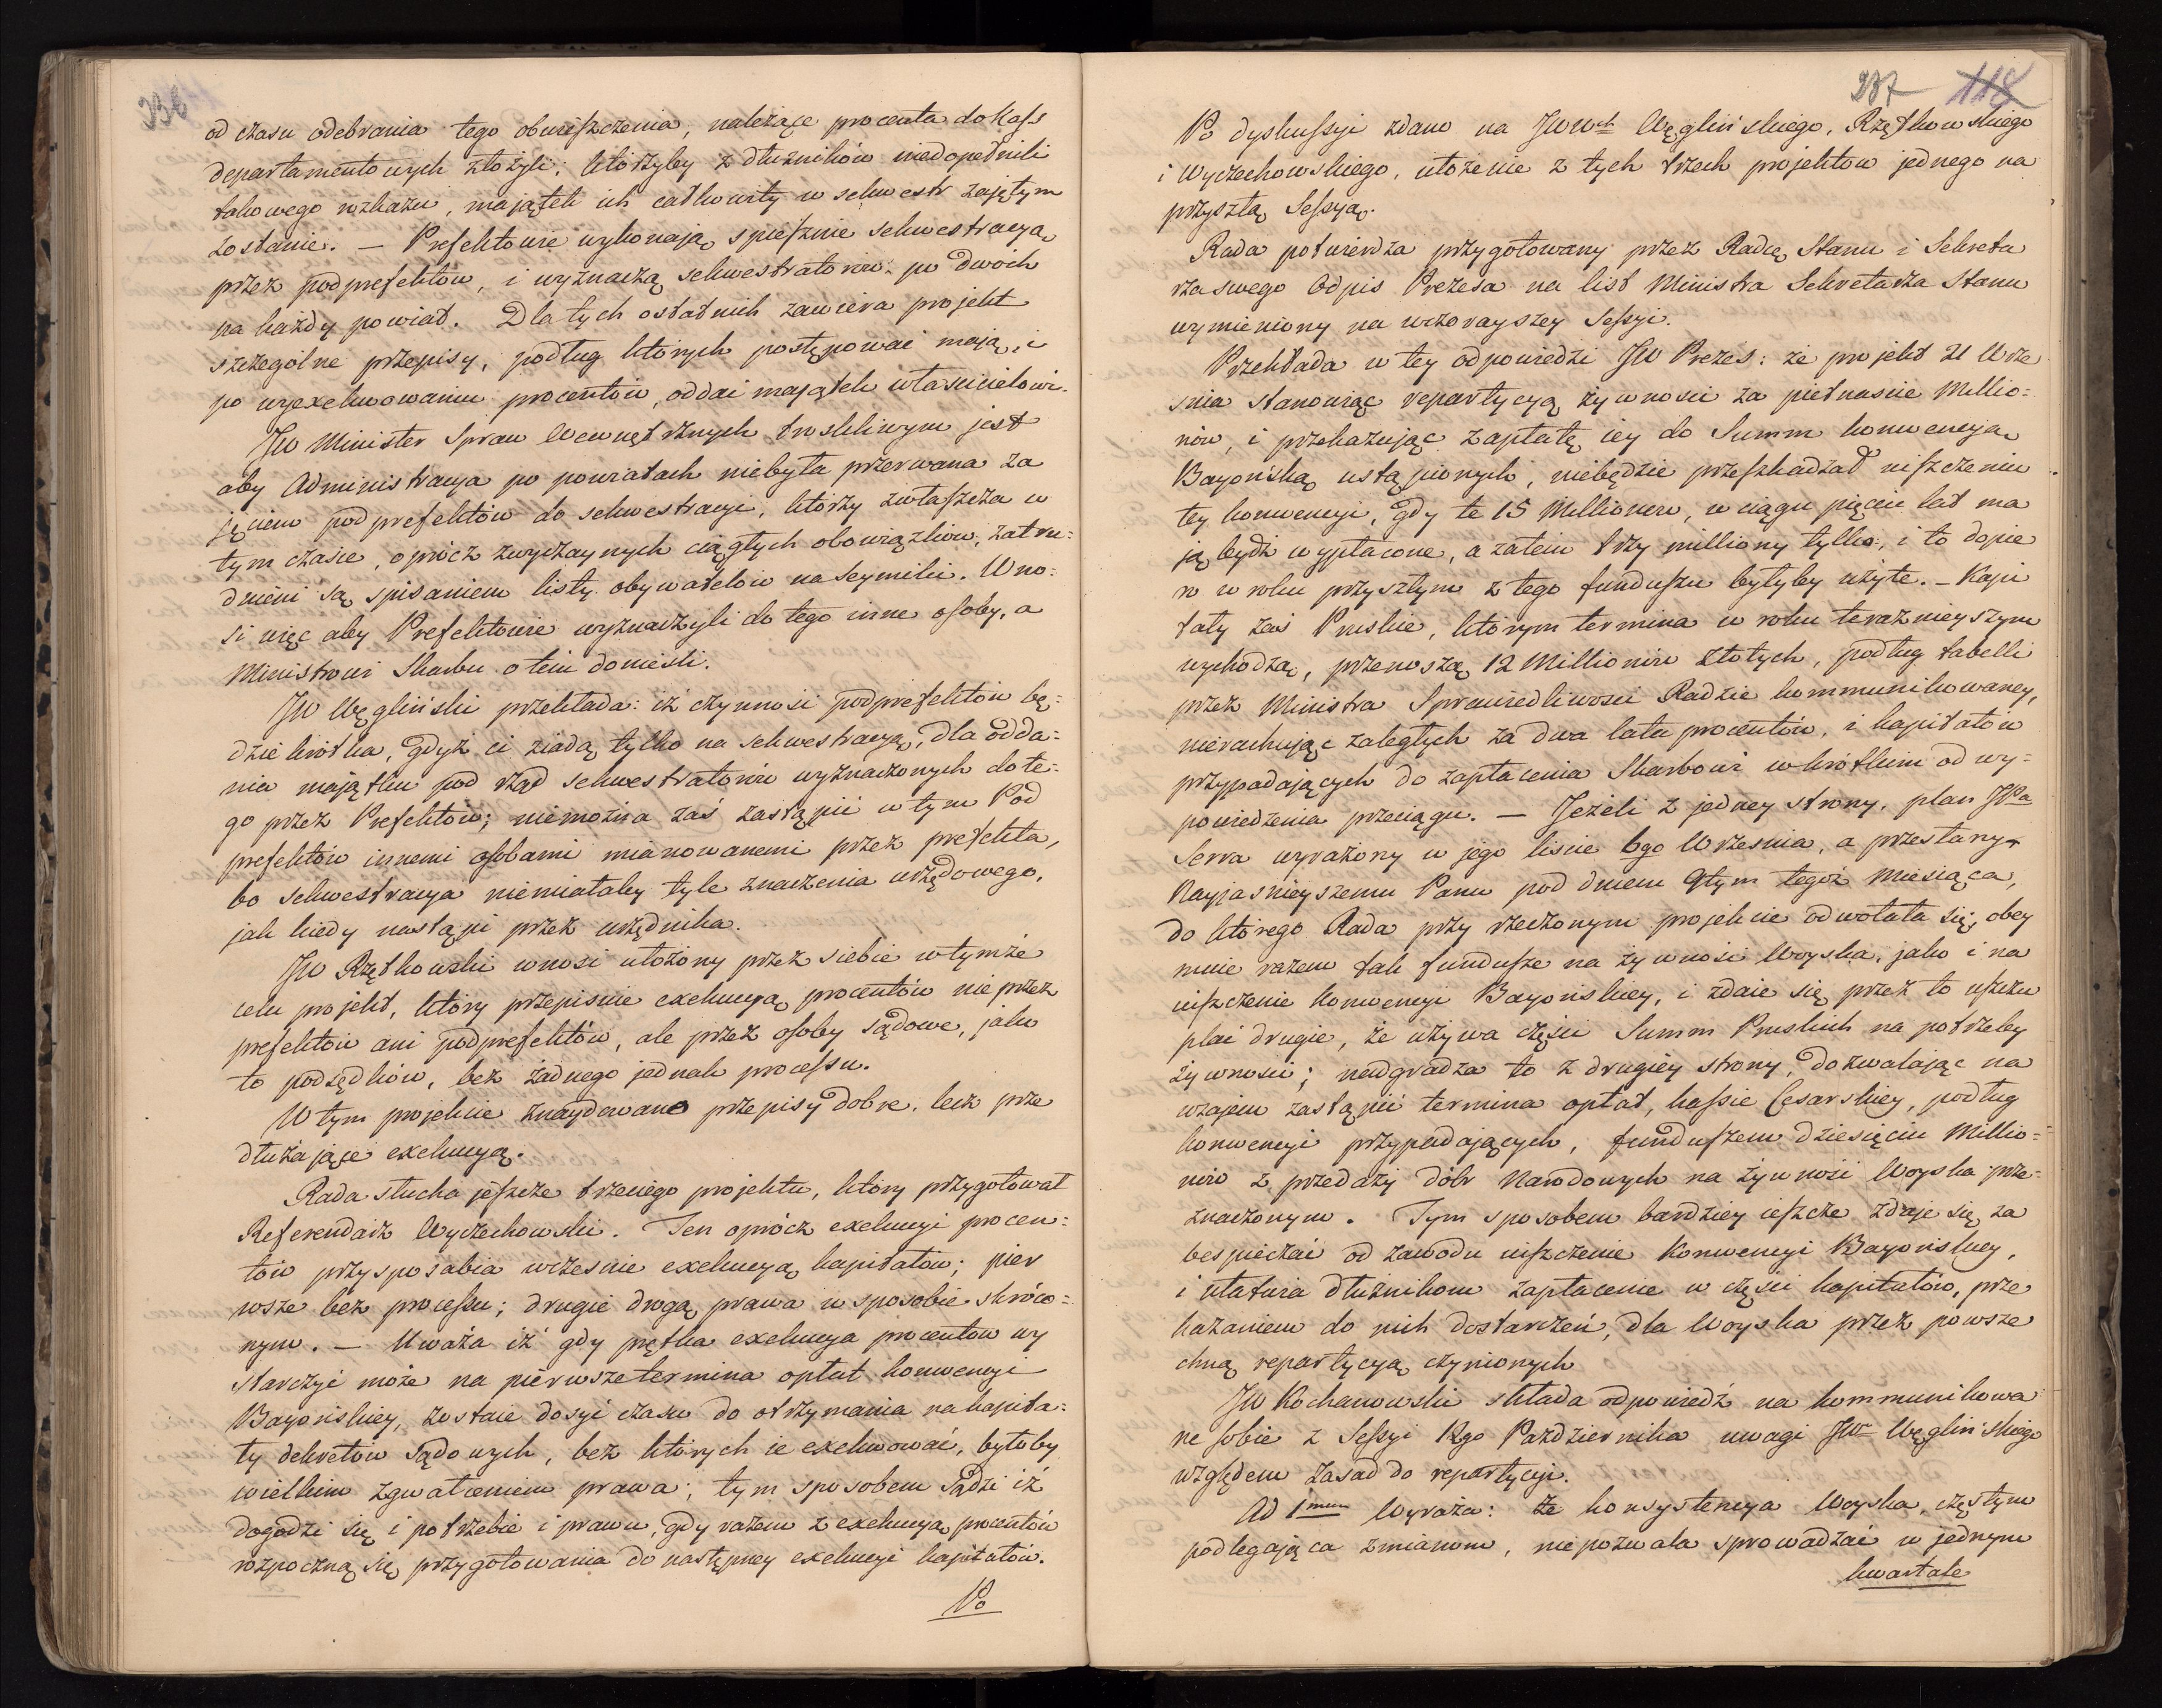 236
od czasu odebrania tego obwieszczenia, należące procenta do Kass
departamentowych złożyli; którzyby z dłużników niedopełnili
takowego rozkazu, majątek ich całkowity w sekwestr zajętym
zostanie. — Prefektowie wykonają spiesznie sekwestracyą,
przez podprefektów, i wyznaczą sekwestratorów po dwóch
na każdy powiat. Dla tych ostatnich zawiera projekt
szczególne przepisy, podług których postępować mają, i
po wyexekwowaniu procentów, oddać majątek właścicielowi.
JW Minister Spraw Wewnętrznych troskliwym jest
aby Administracya po powiatach niebyła przerwana za
jęciem podprefektów do sekwestracyi, którzy zwłaszcza w
tym czasie, oprócz zwyczaynych ciągłych obowiązków, zatru=
dnieni są spisaniem listy obywatelów na Seymiki. Wno=
si więc aby Prefektowie wyznaczyli do tego inne osoby, a
Ministrowi Skarbu o tem donieśli.
JW Węgliński przekłada: iż czynność podprefektów bę=
dzie krótka, gdyż ci ziadą tylko na sekwestracyą, dla odda=
nia majątku pod rząd sekwestratorów wyznaczonych do te=
go przez Prefektów; niemożna zaś zastąpić w tym Pod
prefektów innemi osobami mianowanemi przez prefekta,
bo sekwestracya niemiałaby tyle znaczenia urzędowego,
jak kiedy nastąpi przez urzędnika.
JW Rzętkowski wnosi ułożony przez siebie w tymże
celu projekt, który przepisuie exekucyą procentów nie przez
prefektów ani podprefektów, ale przez osoby sądowe, jako
to podsędków, bez żadnego jednak processu.
W tym projekcie znaydowano przepisy dobre, lecz prze
dłużające exekucyą.
Rada słucha jeszcze trzeciego projektu, który przygotował
Referendarz Wyczechowski. Ten oprócz exekucyi procen=
tów przysposabia wcześnie exekucyą kapitałów; pier
wsze bez processu; drugie drogą prawa w sposobie skróco=
nym. — Uważa iż gdy prętka exekucya procentów wy
starczyć może na pierwsze termina opłat konwencyi
Bayońskiey, zostaie dosyć czasu do otrzymania na kapita=
ły dekretów sądowych, bez których ie exekwować, byłoby
wielkim zgwałceniem prawa; tym sposobem sądzi iż
dogodzi się i potrzebie i prawu, gdy razem z exekucyą procentów
rozpoczną się przygotowania do następney exekucyi kapitałów.
Po
237 118
Po dyskussyi zdano na JWWch Węglińskiego, Rzętkowskiego
i Wyczechowskiego, ułożenie z tych trzech projektów jednego na
przyszłą Sessyą.
Rada potwierdza przygotowany przez Radcę Stanu i Sekreta
rza swego Odpis Prezesa na list Ministra Sekretarza Stanu
wymieniony na wczorayszey Sessyi.
Przekłada w tey odpowiedzi JW Prezes: że projekt 21 Wrze
śnia stanowiąc repartycyą żywności za piętnaście Millio=
nów, i przekazując zapłatę iey do Summ konwencyą
Bayońską ustąpionych, niebędzie przeszkadzał uiszczeniu
tey konwencyi, gdy te 15 Millionów, w ciągu pięciu lat ma
ją bydź wypłacone, a zatem trzy milliony tylko, i to dopie
ro w roku przyszłym z tego funduszu byłyby użyte. — Kapi
tały zaś Pruskie, którym termina w roku teraznieyszym
wychodzą, przenoszą 12 Millionów złotych, podług tabelli
przez Ministra Sprawiedliwości Radzie kommunikowaney,
nierachując zaległych za dwa lata procentów, i kapitałów
przypadających do zapłacenia Skarbowi w krótkim od wy=
powiedzenia przeciągu. — Jeżeli z jedney strony, plan JPa
Serra wyrażony w jego liście 6go Września, a przesłany
Nayjaśnieyszemu Panu pod dniem 9tym tegoż Miesiąca,
do którego Rada przy rzeczonym projekcie odwołała się, obey
muie razem tak fundusze na żywność Woyska, jako i na
uiszczenie Konwencyi Bayońskiey, i zdaie się przez to uszczu
plać drugie, że używa części Summ Pruskich na potrzeby
żywności; nadgradza to z drugiéy strony, dozwalając na
wzajem zastąpić termina opłat, kassie Cesarskiey, podług
konwencyi przypadających, funduszem dziesięciu Millio=
nów z przedaży dóbr Narodowych na żywność Woyska prze=
znaczonym. Tym sposobem bardziey ieszcze zdaje się za
bespieczać od zawodu uiszczenie Konwencyi Bayońskiey,
i ułatwia dłużnikom zapłacenie w części kapitałów, prze
kazaniem do nich dostarczeń, dla Woyska przez powsze
chną repartycyą czynionych
JW Kochanowski składa odpowiedź na kommunikowa
ne sobie z Sessyi 12go Pazdziernika uwagi JW Węglińskiego
względem zasad do repartycyi.
Ad 1mum Wyraża: że konsystencya Woyska, częstym
podlegająca zmianom, niepozwala sprowadzać w jednym
kwartale